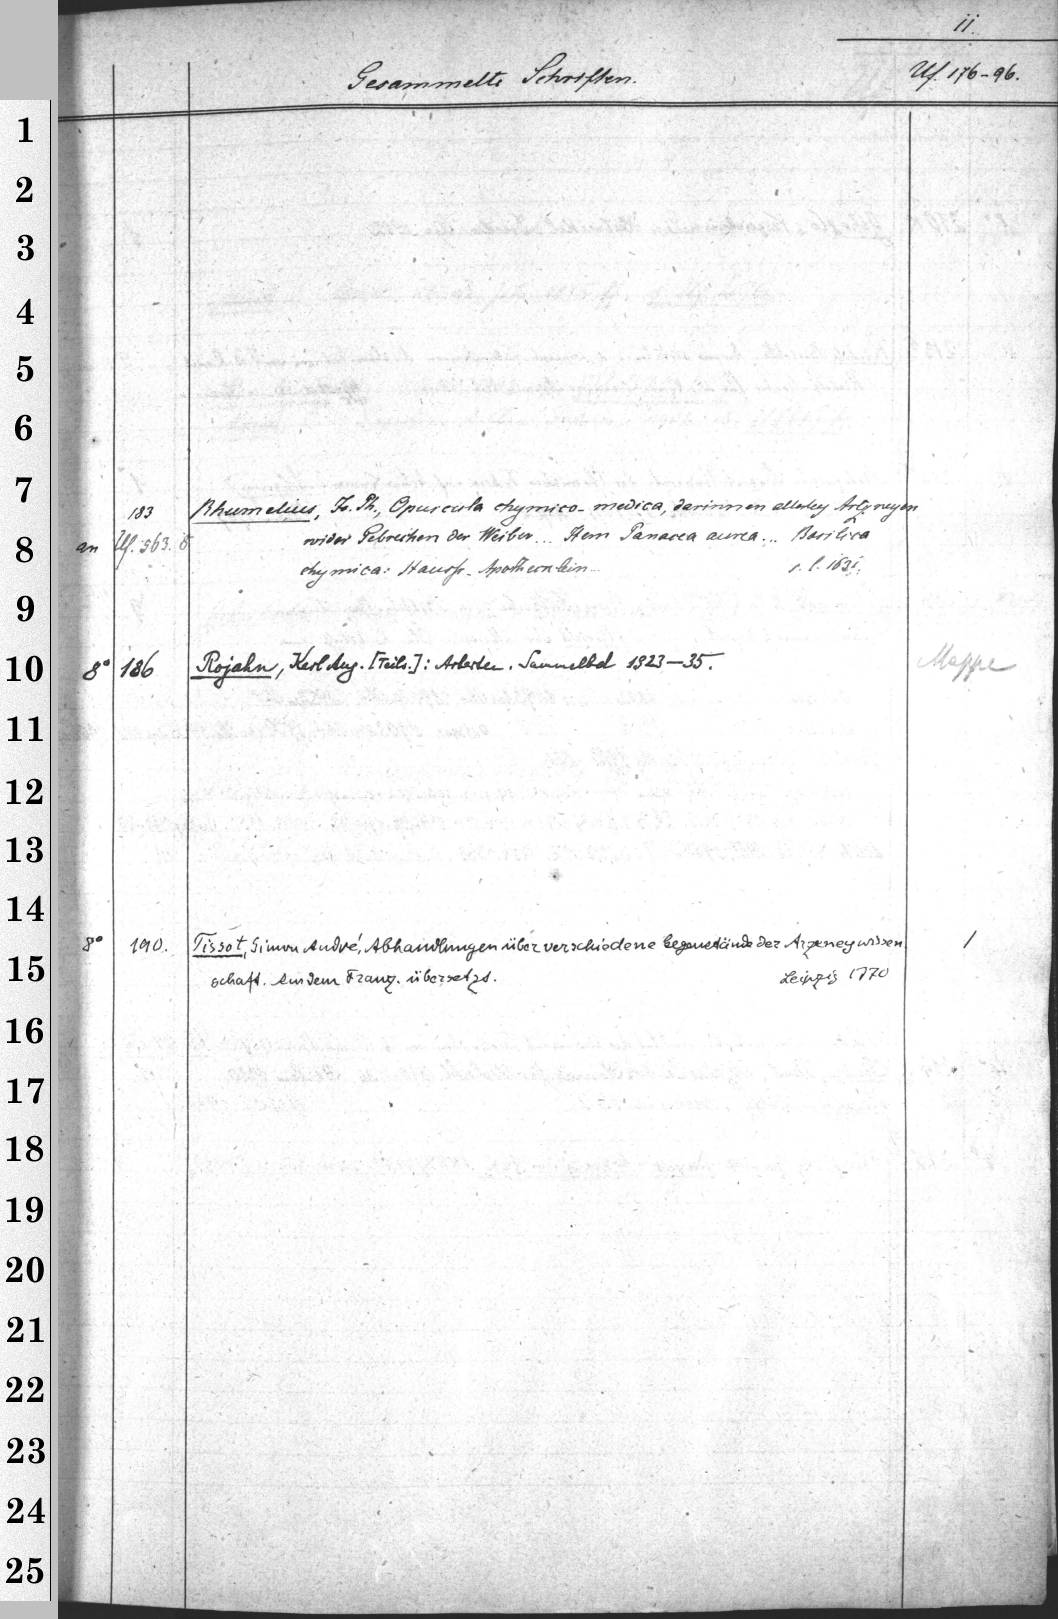 ii.
Gesammelte Schriften.
Uf. 176-96.
183 Rhumelius, Jo. Ph., Opuscula chymico-medica, darinnen allerley Artzneyen
an Uf. 563. 8° wider Gebrechen der Weiber... Item Panacea aurea... Basilica
chymica: Haussp. Apotheckn lein... s. l. 1631.
8° 186 Rojahn, Karl Aug. [Teiln.]: Arbeiten. Sammelbd 1923-35. Mappe
8° 190. Tissot, Simon André, Abhandlungen über verschiedene Gegenstände der Arzeneywissen 1
schaft. Aus dem Franz. übersetzt. Leipzig 1770
1
2
3
4
5
6
7
8
9
10
11
12
13
14
15
16
17
18
19
20
21
22
23
24
25